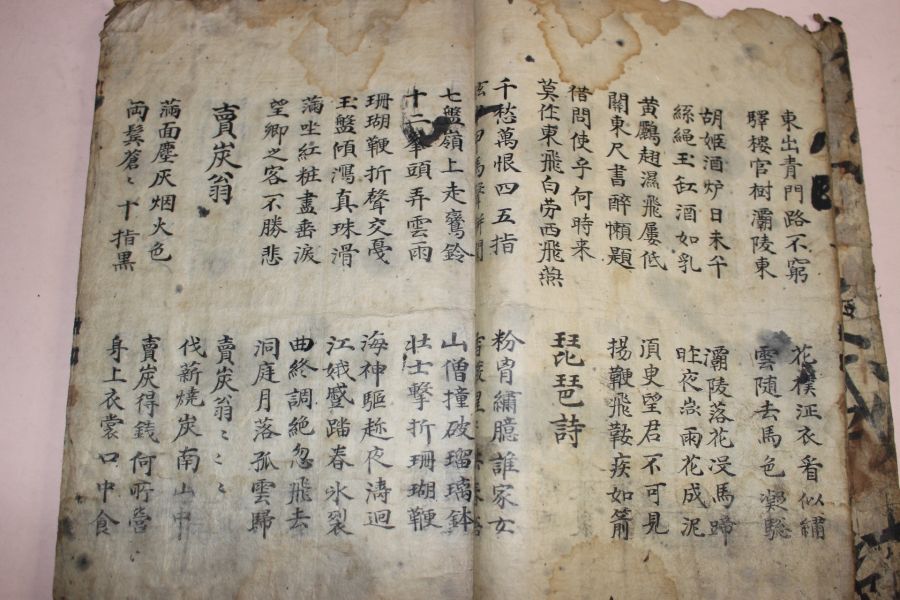 東出青門路不窮
驛樓官樹灞陵東
花撲征衣看似繡
雲隨去馬色凝驄
胡姬酒炉日未午
絲繩玉缸酒如乳
灞陵落花沒馬蹄
昨夜微雨花成泥
黃鸝趐濕飛屢低
關東尺書醉懶題
須臾望君不可見
揚鞭飛鞍疾如箭
借問使乎何時来
莫作東飛白劳西飛燕
琵琶詩
千愁萬恨四五指
粉胷繡臆誰家女
七盤嶺上走鸞鈴
十二峯頭弄雲雨
山僧撞破瑠璃鉢
壮士擊折珊瑚鞭
珊瑚鞭折聲交戛
玉盤傾瀉真珠滑
海神驅趂夜濤迴
江娥蹙踏春氷裂
滿坐紅粧盡垂淚
望鄉之客不勝悲
曲終調絕忽飛去
洞庭月落孤雲歸
賣炭翁
賣炭翁〻〻〻
伐薪燒炭南山中
滿面塵灰烟火色
両鬓蒼〻十指黑
賣炭得銭何所營
身上衣裳口中食